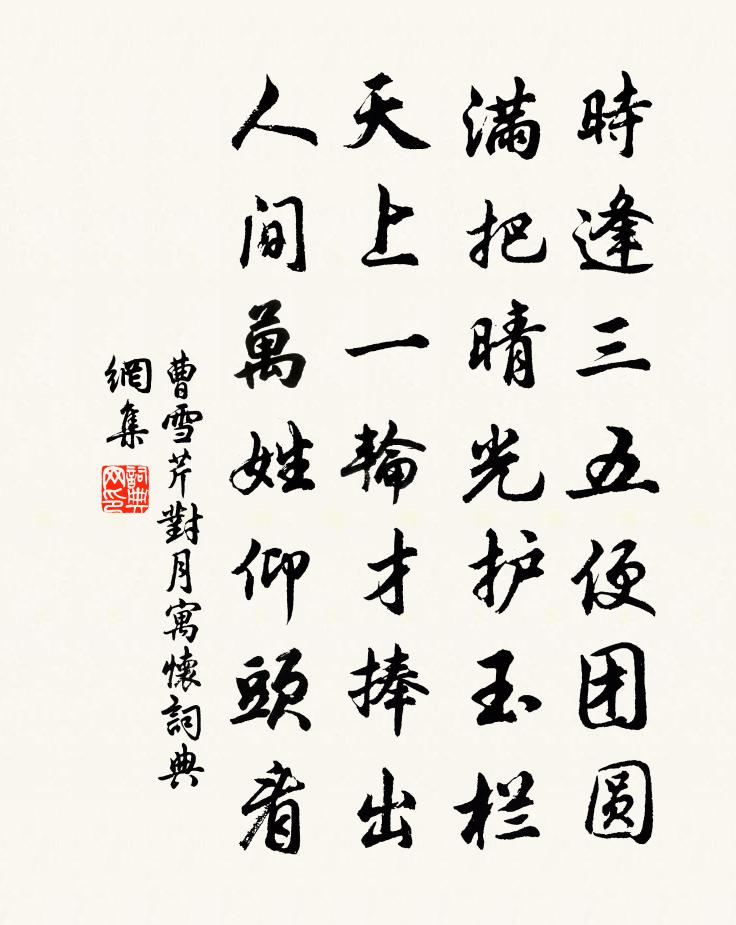 時逢三五便团圆
满把晴光护玉栏
天上一輪才捧出
人间萬姓仰頭看
曹雪芹對月寓懷詞典
網集
詞典
网印